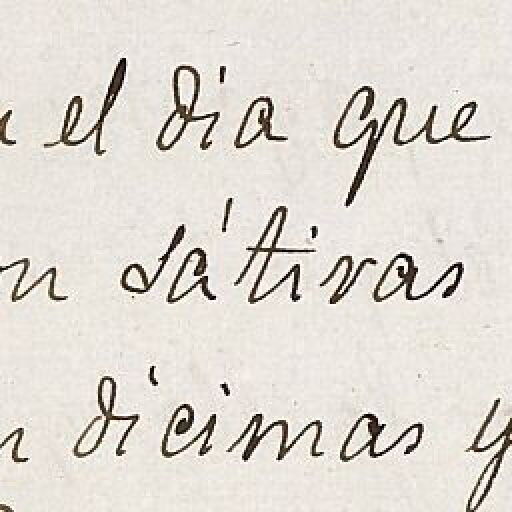 el día que
sátiras
dicimas y